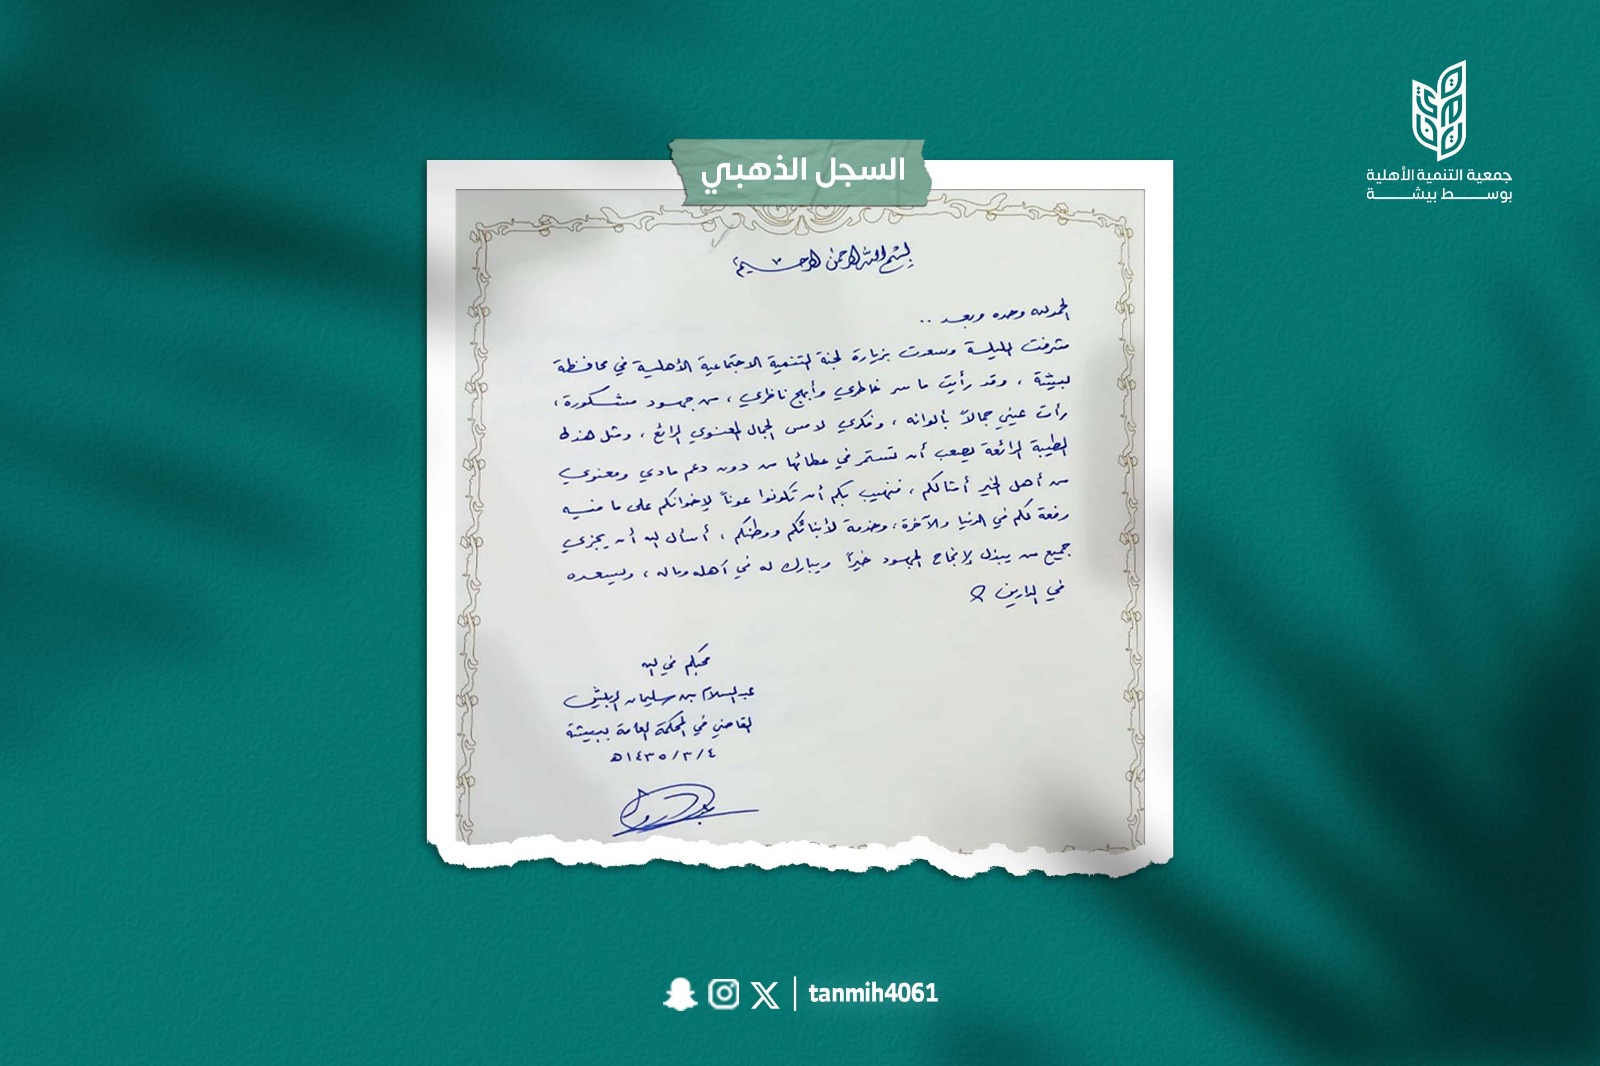 جمعية التنمية الأهلية
بوسط بيشة
السجل الذهبي
بسم الله الرحمن الرحيم
الحمد لله وحده وبعد ..
تشرفت الليلة وسعدت بزيارة لجنة التنمية الاجتماعية الأهلية في محافظة
بيشة ، وقد رأيت ما سر خاطري وأبهج ناظري ، من جهود مشكورة ،
رأت عيني جمالاً بألوانه ، وفكري لامس الجمال المعنوي الرائع ، ومثل هذه
الطيبة الرائعة يصعب أن تستمر في عطائها من دون دعم مادي ومعنوي
من أهل الخير أمثالكم ، فنهيب بكم أن تكونوا عوناً لإخوانكم على ما فيه
رفعة لكم في الدنيا والآخرة ، وخدمة لأبنائكم ووطنكم ، أسأل الله أن يجزي
جميع من يبذل لإنجاح الجهود خيراً ويبارك له في أهله وماله ، ويسعده
في الدارين
محبكم في الله
عبدالسلام بن سليمان
القاضي في المحكمة العامة ببيشة
١٤٣٥/٣/٤هـ
tanmih4061